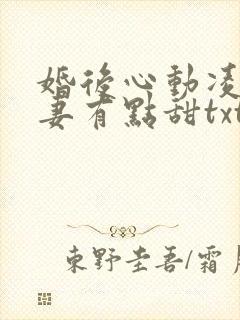 婚後心動凌
妻有點甜txt
東野圭吾/霜月